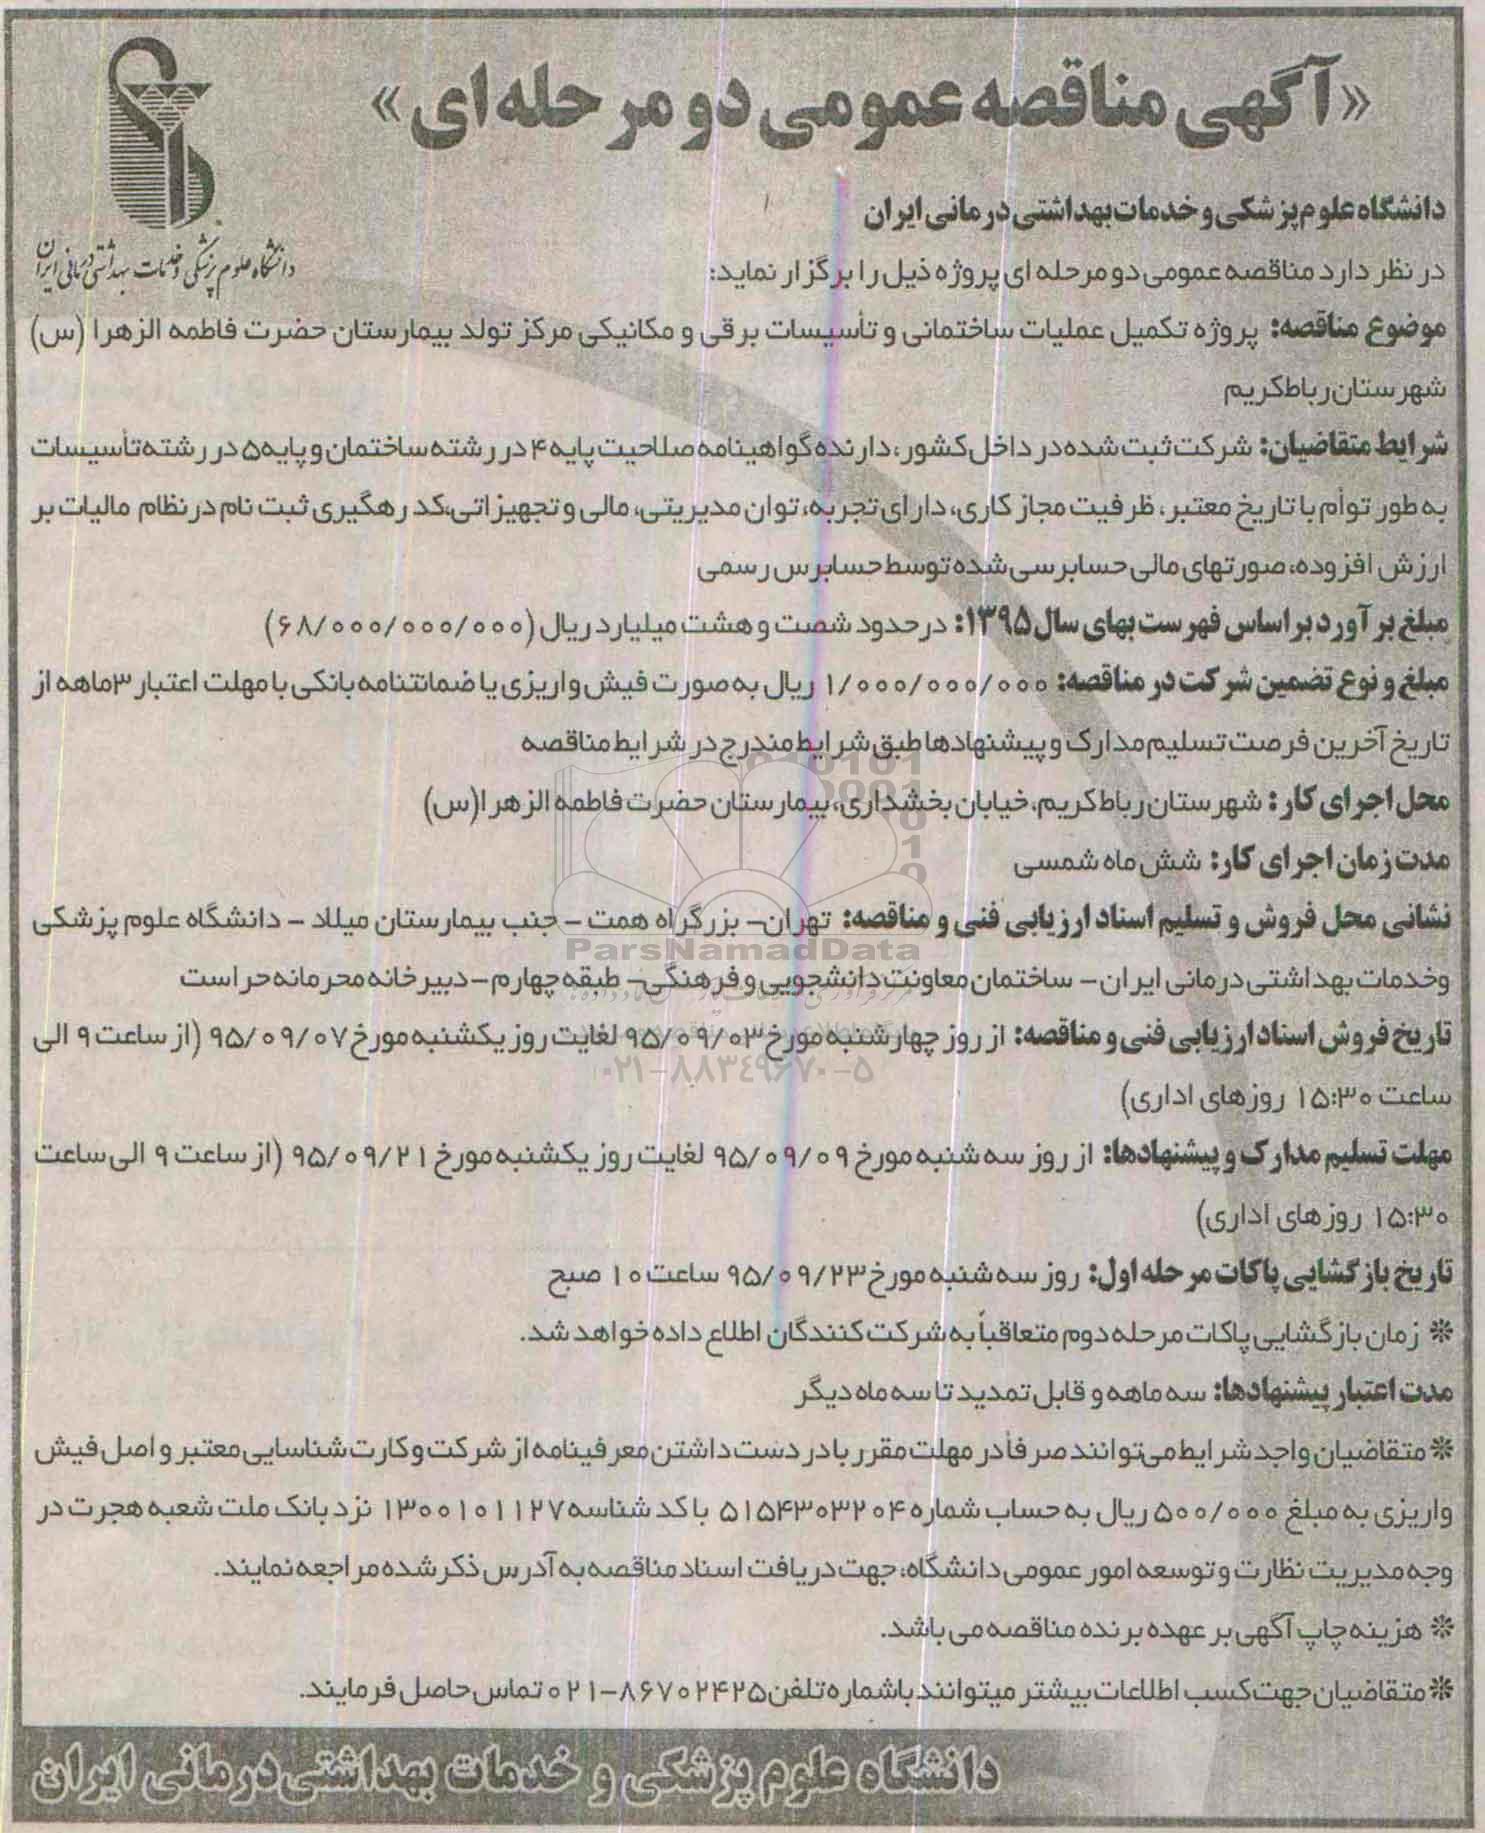 «آگهی مناقصه عمومی دو مرحله ای»
دانشگاه علوم پزشکی و خدمات بهداشتی درمانی ایران
دانشگاه علوم پزشکی و خدمات بهداشتی درمانی ایران
در نظر دارد مناقصه عمومی دو مرحله ای پروژه ذیل را برگزار نماید:
موضوع مناقصه: پروژه تکمیل عملیات ساختمانی و تأسیسات برقی و مکانیکی مرکز تولد بیمارستان حضرت فاطمه الزهرا (س)
شهرستان رباط‌کریم
شرایط متقاضیان: شرکت ثبت شده در داخل کشور، دارنده گواهینامه صلاحیت پایه ۴ در رشته ساختمان و پایه ۵ در رشته تأسیسات
به طور توأم با تاریخ معتبر، ظرفیت مجاز کاری، دارای تجربه، توان مدیریتی، مالی و تجهیزاتی، کد رهگیری ثبت نام در نظام مالیات بر
ارزش افزوده، صورتهای مالی حسابرسی شده توسط حسابرس رسمی
مبلغ برآورد براساس فهرست بهای سال ۱۳۹۵: در حدود شصت و هشت میلیارد ریال (۶۸/۰۰۰/۰۰۰/۰۰۰)
مبلغ و نوع تضمین شرکت در مناقصه: ۱/۰۰۰/۰۰۰/۰۰۰ ریال به صورت فیش واریزی یا ضمانتنامه بانکی با مهلت اعتبار ۳ماهه از
تاریخ آخرین فرصت تسلیم مدارک و پیشنهادها طبق شرایط مندرج در شرایط مناقصه
محل اجرای کار: شهرستان رباط‌کریم، خیابان بخشداری، بیمارستان حضرت فاطمه الزهرا(س)
مدت زمان اجرای کار: شش ماه شمسی
نشانی محل فروش و تسلیم اسناد ارزیابی فنی و مناقصه: تهران- بزرگراه همت - جنب بیمارستان میلاد - دانشگاه علوم پزشکی
ParsNamadData
وخدمات بهداشتی درمانی ایران - ساختمان معاونت دانشجویی و فرهنگی- طبقه چهارم - دبیرخانه محرمانه حراست
تاریخ فروش اسناد ارزیابی فنی و مناقصه: از روز چهارشنبه مورخ ۹۵/۰۹/۰۳ لغایت روز یکشنبه مورخ ۹۵/۰۹/۰۷ (از ساعت ۹ الی
۰۲۱-۸۸۳۴۹۶۷۰-۵
ساعت ۱۵:۳۰ روزهای اداری)
مهلت تسلیم مدارک و پیشنهادها: از روز سه شنبه مورخ ۹۵/۰۹/۰۹ لغایت روز یکشنبه مورخ ۹۵/۰۹/۲۱ (از ساعت ۹ الی ساعت
۱۵:۳۰ روزهای اداری)
تاریخ بازگشایی پاکات مرحله اول: روز سه شنبه مورخ ۹۵/۰۹/۲۳ ساعت ۱۰ صبح
* زمان بازگشایی پاکات مرحله دوم متعاقباً به شرکت کنندگان اطلاع داده خواهد شد.
مدت اعتبار پیشنهادها: سه ماهه و قابل تمدید تا سه ماه دیگر
* متقاضیان واجد شرایط می‌توانند صرفاً در مهلت مقرر با در دست داشتن معرفینامه از شرکت و کارت شناسایی معتبر و اصل فیش
واریزی به مبلغ ۵۰۰/۰۰۰ ریال به حساب شماره ۵۱۵۴۳۰۳۲۰۴ با کد شناسه ۱۳۰۰۱۰۱۱۲۷ نزد بانک ملت شعبه هجرت در
وجه مدیریت نظارت و توسعه امور عمومی دانشگاه، جهت دریافت اسناد مناقصه به آدرس ذکر شده مراجعه نمایند.
* هزینه چاپ آگهی بر عهده برنده مناقصه می باشد.
* متقاضیان جهت کسب اطلاعات بیشتر میتوانند با شماره تلفن ۸۶۷۰۲۴۲۵-۰۲۱ تماس حاصل فرمایند.
دانشگاه علوم پزشکی و خدمات بهداشتی درمانی ایران